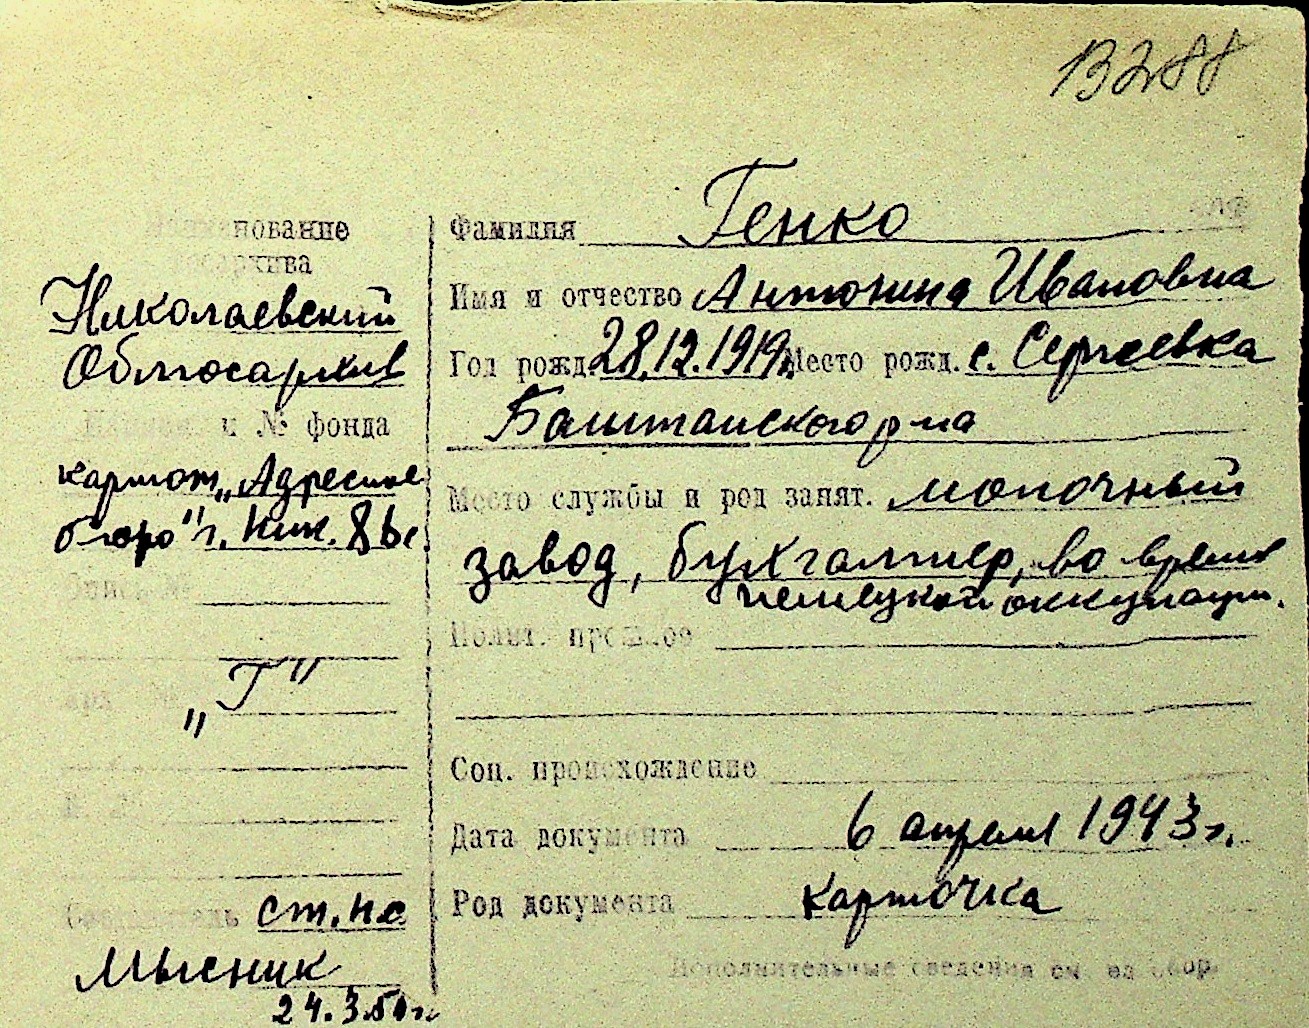 Наименование
госархива
Николаевский
Облгосархив
и № фонда
картот. „Адресное
бюро" г. Ник.
Опись №
„Г"
Составитель ст. н.с
Мысник
24.3.50г.
Фамилия Генко
Имя и отчество Антонина Ивановна
Год рожд. 28.12.1919г. Место рожд. с. Сергеевка
Баштанского р-на
Место службы и род занят. молочный
завод, бухгалтер, во время
немецкой оккупации.
Полит. прошлое
Соц. происхождение
Дата документа 6 апреля 1943 г.
Род документа карточка
Дополнительные сведения см. на обор.